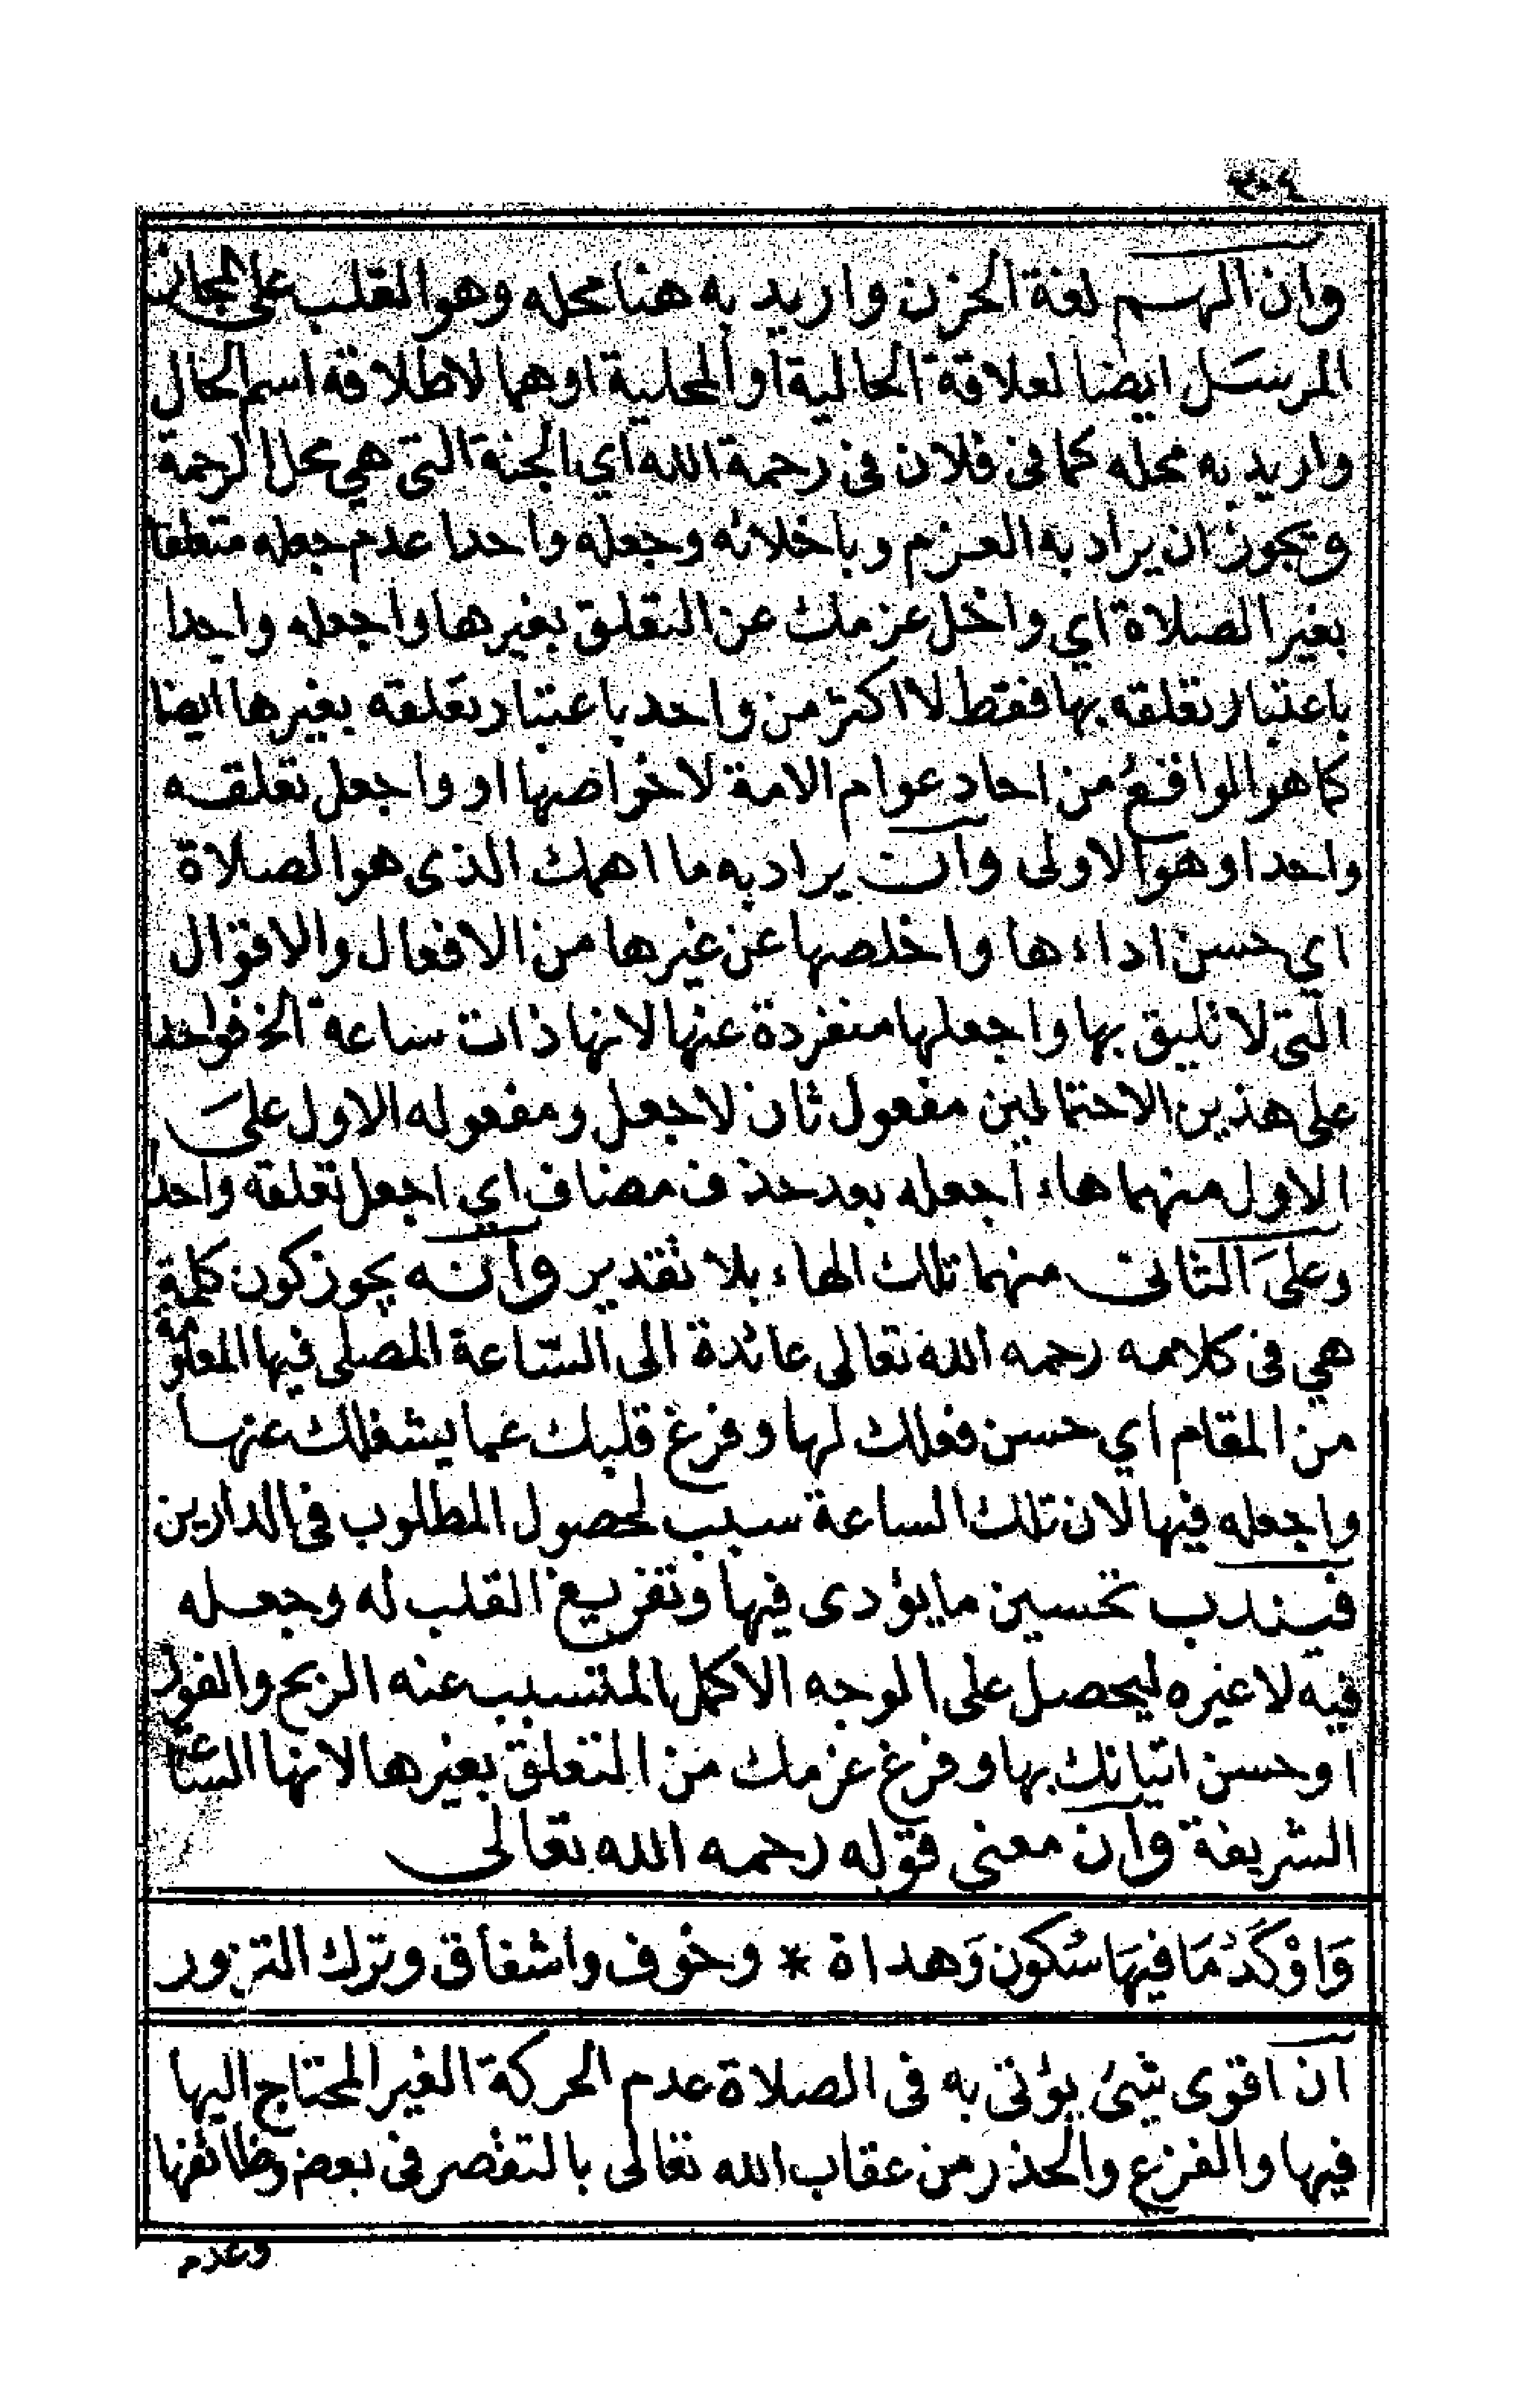 ٢٠٤
وان الهم لغة الحزن واريد به هنا محله وهو القلب على المجاز
المرسل ايضا لعلاقة الحالية او المحلية او هما لاطلاقه اسم الحال
واريد به محله كما فى فلان فى رحمة الله اي الجنة التى هي محل الرحمة
ويجوز ان يراد به العزم وباخلائه وجعله واحدا عدم جعله متعلقا
بغير الصلاة اي واخل عزمك عن التعلق بغيرها واجعله واحدا
باعتبار تعلقه بها فقط لا اكثر من واحد باعتبار تعلقه بغيرها ايضا
كما هو الواقع من احاد عوام الامة لا خواصها او واجعل تعلقه
واحدا وهو الاولى وان يراد به ما اهمك الذى هو الصلاة
اي حسن اداءها واخلصها عن غيرها من الافعال والاقوال
التى لا تليق بها واجعلها منفردة عنها لانها ذات ساعة الخ فواحدا
على هذين الاحتمالين مفعول ثان لاجعل ومفعوله الاول على
الاول منهما هاء اجعله بعد حذف مضاف اي اجعل تعلقه واحدا
وعلى الثانى منهما تلك الهاء بلا تقدير وانه يجوز كون كلمة
هي فى كلامه رحمه الله تعالى عائدة الى الساعة المصلى فيها المعلومة
من المقام اي حسن فعلك لها وفرغ قلبك عما يشغلك عنها
واجعله فيها لان تلك الساعة سبب لحصول المطلوب فى الدارين
فيندب تحسين ما يؤدى فيها وتفريغ القلب له وجعله
فيه لا غيره ليحصل على الوجه الاكمل المتسبب عنه الربح والفوز
او حسن اتيانك بها وفرغ عزمك من التعلق بغيرها لانها الساعة
الشريفة وان معنى قوله رحمه الله تعالى
وَاوْكَدُ مَا فيهَا سُكون وَهداة * وخوف واشفاق وترك التزور
ان اقوى شئ يؤتى به فى الصلاة عدم الحركة الغير المحتاج اليها
فيها والفزع والحذر من عقاب الله تعالى بالتقصر فى بعض وظائفها
وعدم